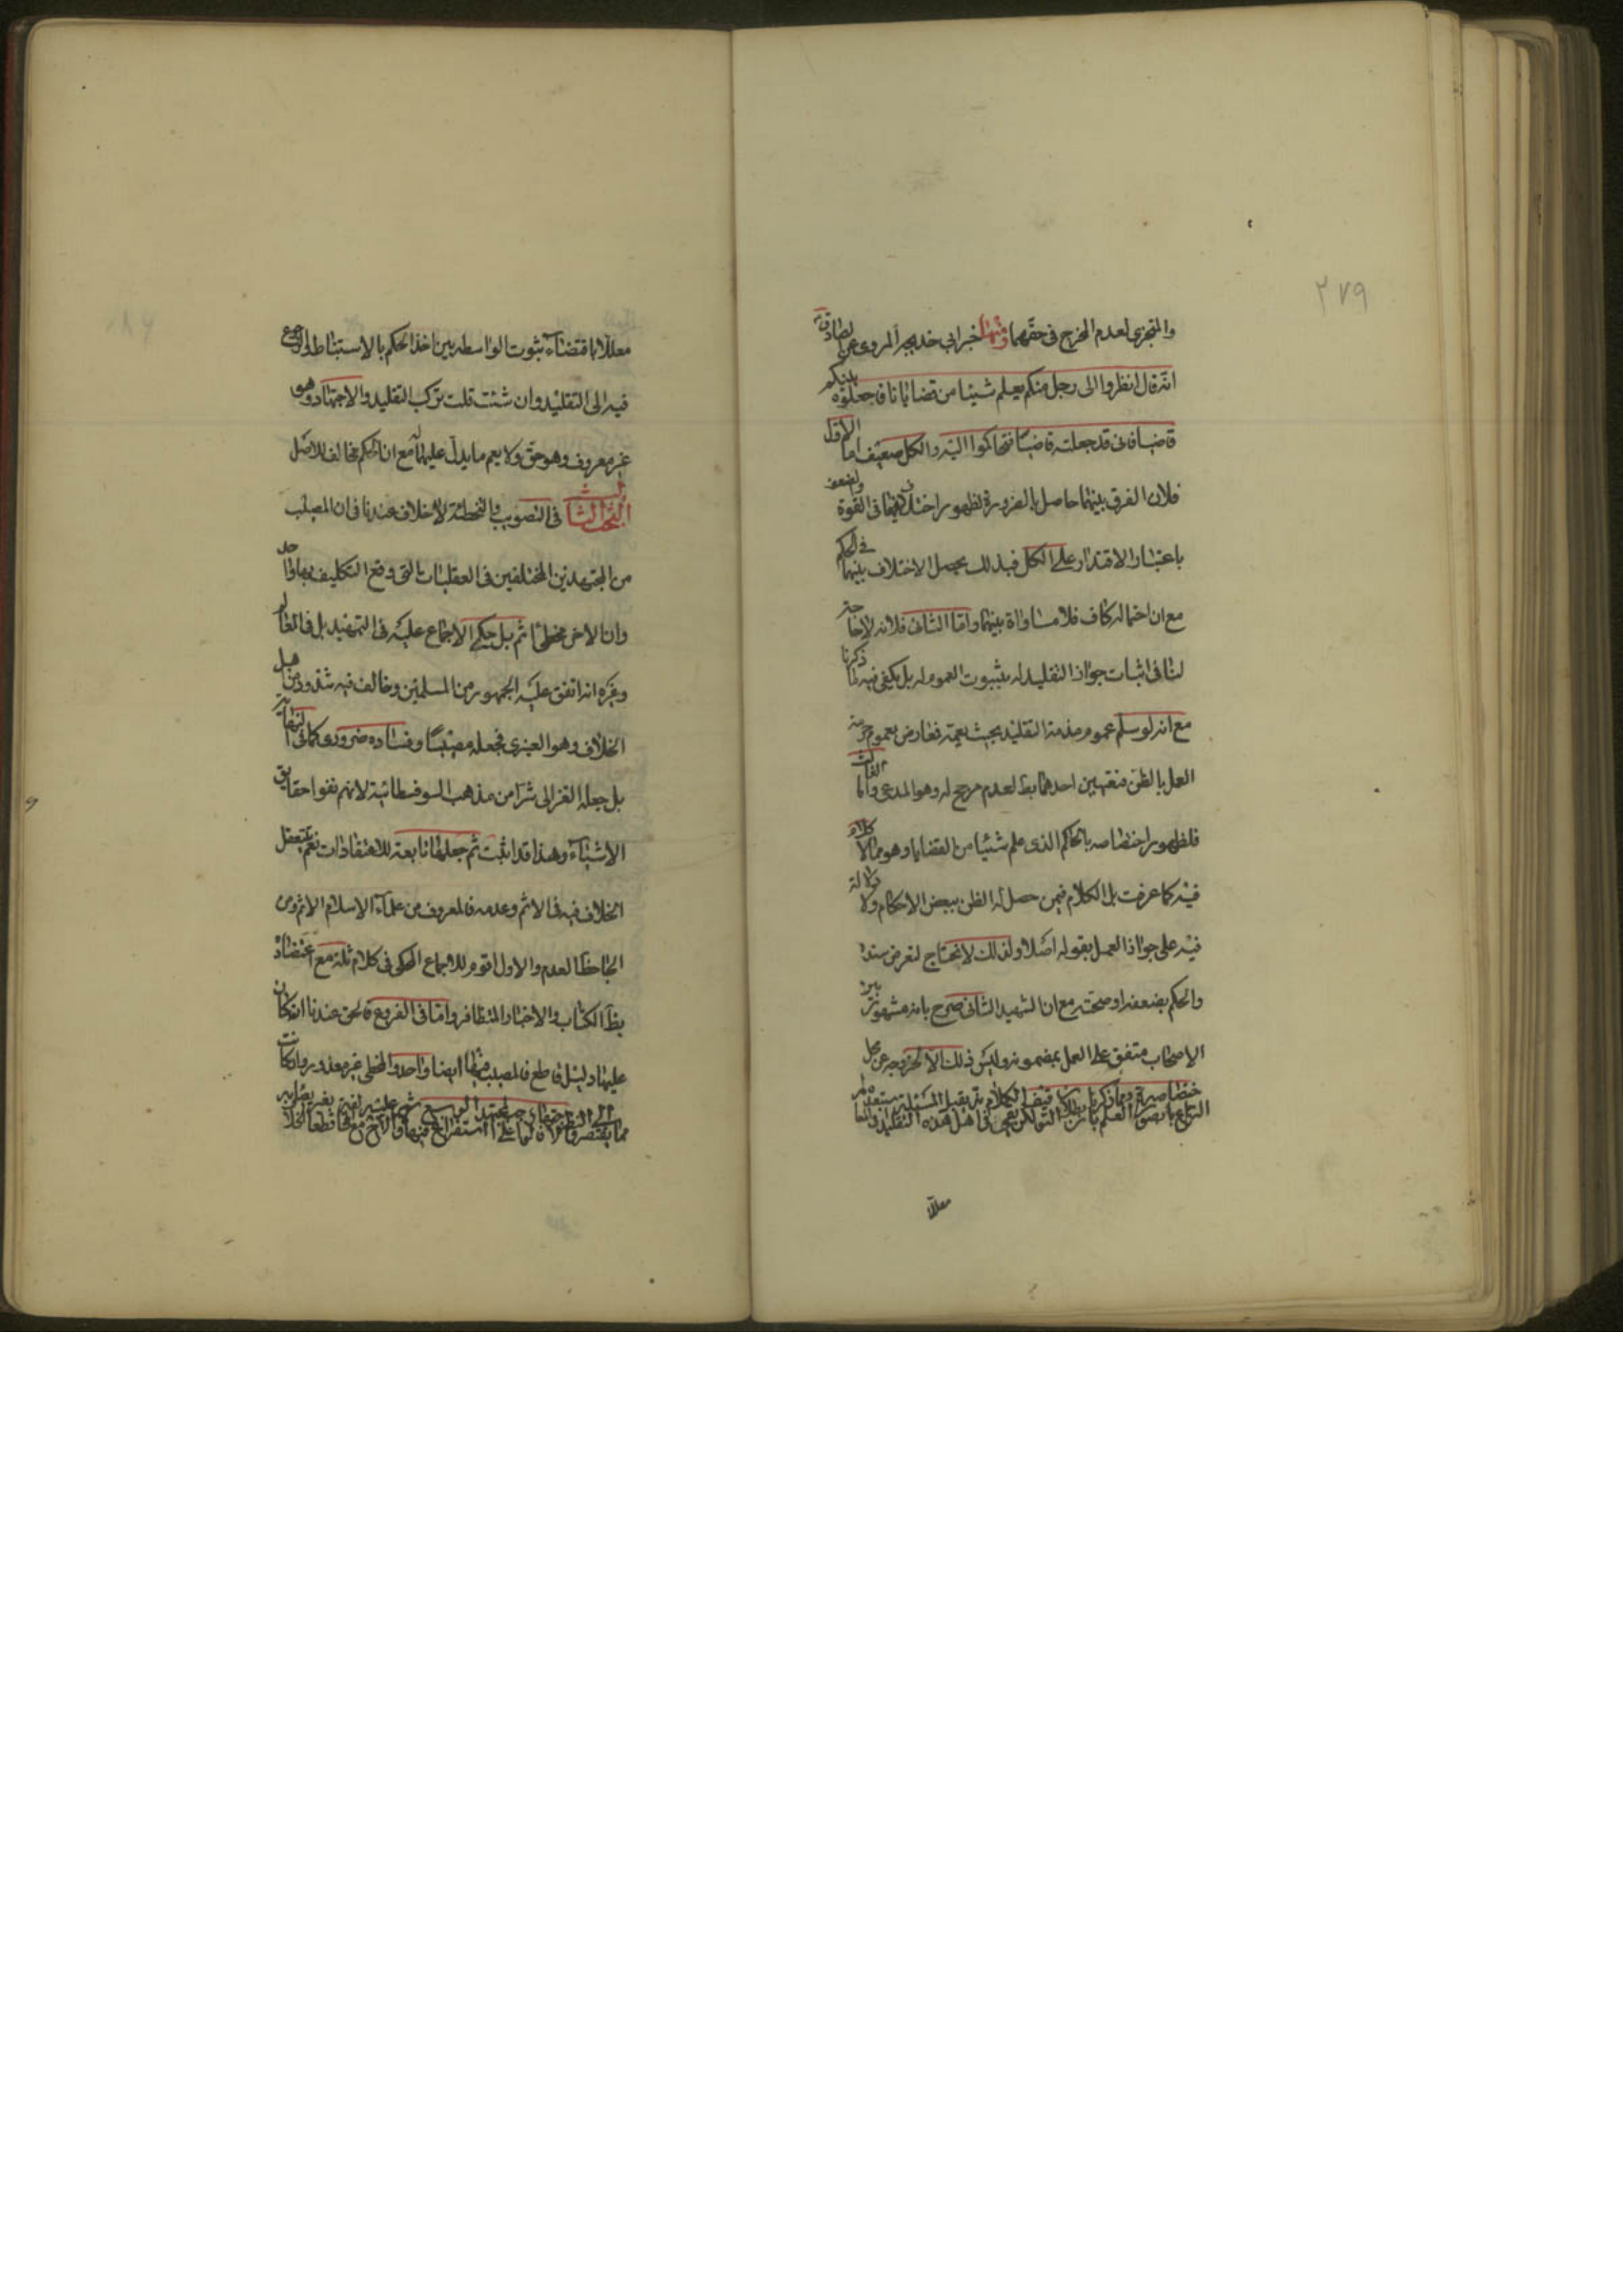 ٢٧٩
والمتجزى لعدم المخرج فى حقهما ومنها خبر ابى خديجة المروى عن الصادق
انه قال انظروا الى رجل منكم يعلم شيئا من قضايانا فاجعلوه بينكم
قاضيا فانى قد جعلته قاضيا فتحاكموا اليه والكل ضعيف اما الاول
فلان الفرق بينهما حاصل بالضرورة لظهور اختلافهما فى القوة والضعف
باعتبار الاقتدار على الكل فبذلك يحصل الاختلاف بينهما فى الحكم
مع ان احتماله كاف فلا مساواة بينهما واما الثانى فلانه لا حاجة
لنا فى اثبات جواز التقليد له بثبوت العموم له بل يكفى فيه ما ذكرنا
مع انه لو سلم عموم مذمة التقليد بحيث يعمه فعارض بعموم حرمة
العمل بالظن فتعيين احدهما بط لعدم مرجح له وهو المدعى واما الثالث
فلظهور اختصاصه بالحاكم الذى علم شيئا من القضايا وهو مما لا كلام
فيه كما عرفت بل الكلام فيمن حصل له الظن ببعض الاحكام ولا دلالة
فيه على جواز العمل بقوله اصلا ولذلك لا نحتاج لتعرض سنده
والحكم بضعفه او صحته مع ان الشهيد الثانى صرح بانه مشهور بين
الاصحاب متفق على العمل بمضمونه وليس ذلك الا لخروجه عن محل
معللا
معللا باقتضائه ثبوت الواسطه بين اخذ الحكم بالاستنباط والرجوع
فيه الى التقليد وان شئت قلت تركب التقليد والاجتهاد وهو
غير معروف وهو حق ولا يعم ما يدل عليهما له مع ان الحكم مخالف للاصل
البحث الثالث فى التصويب والتخطئة لا خلاف عندنا فى ان المصيب
من المجتهدين المختلفين فى العقليات التى وقع التكليف بها واحد
وان الاخر مخطئ اثم بل حكى الاجماع عليه فى التمهيد بل فى المعالم
وغيره انه اتفق عليه الجمهور من المسلمين وخالف فيه شذوذ من اهل
الخلاف وهو العنبرى فجعله مصيبا وفساده ضرورى كما فى النهاية
بل جعله الغزالى شرا من مذهب السوفسطائية لانهم نفوا حقايق
الاشياء وهذا قد اثبت ثم جعلها تابعة للاعتقادات نعم يتعقل
الخلاف فيه فى الاثم وعدمه فالمعروف من علماء الاسلام الاثم وعن
الجاحظ العدم والاول اقوم للاجماع المحكى فى كلام ثلة مع اعتضاده
بظ الكتاب والاخبار المتظافرة واما فى الفروع فالحق عندنا انه ان كان
عليها دليل قاطع فالمصيب فيها ايضا واحد والمخطى غير معذور وان كانت